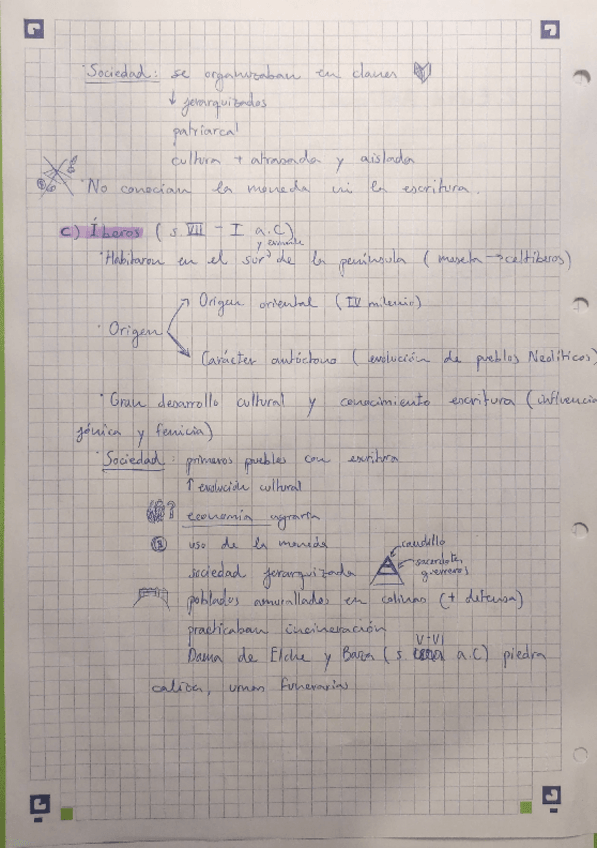 · Sociedad: se organizaban en clanes
↓ jerarquizados
patriarcal
cultura + atrasada y aislada
· No conocían la moneda ni la escritura.
c) Íberos (s. VII - I a.C)
· Habitaron en el sur de la península (meseta → celtíberos)
Origen oriental (IV milenio)
· Origen
Carácter autóctono (evolución de pueblos Neolíticos)
· Gran desarrollo cultural y conocimiento escritura (influencia
jónica y fenicia)
· Sociedad: primeros pueblos con escritura
↑ evolución cultural
economía agraria
uso de la moneda
caudillo
sociedad jerarquizada
sacerdotes
guerreros
poblados amurallados en colinas (+ defensa)
practicaban incineración
V-VI
Dama de Elche y Baza (s a.C) piedra
caliza, urnas funerarias